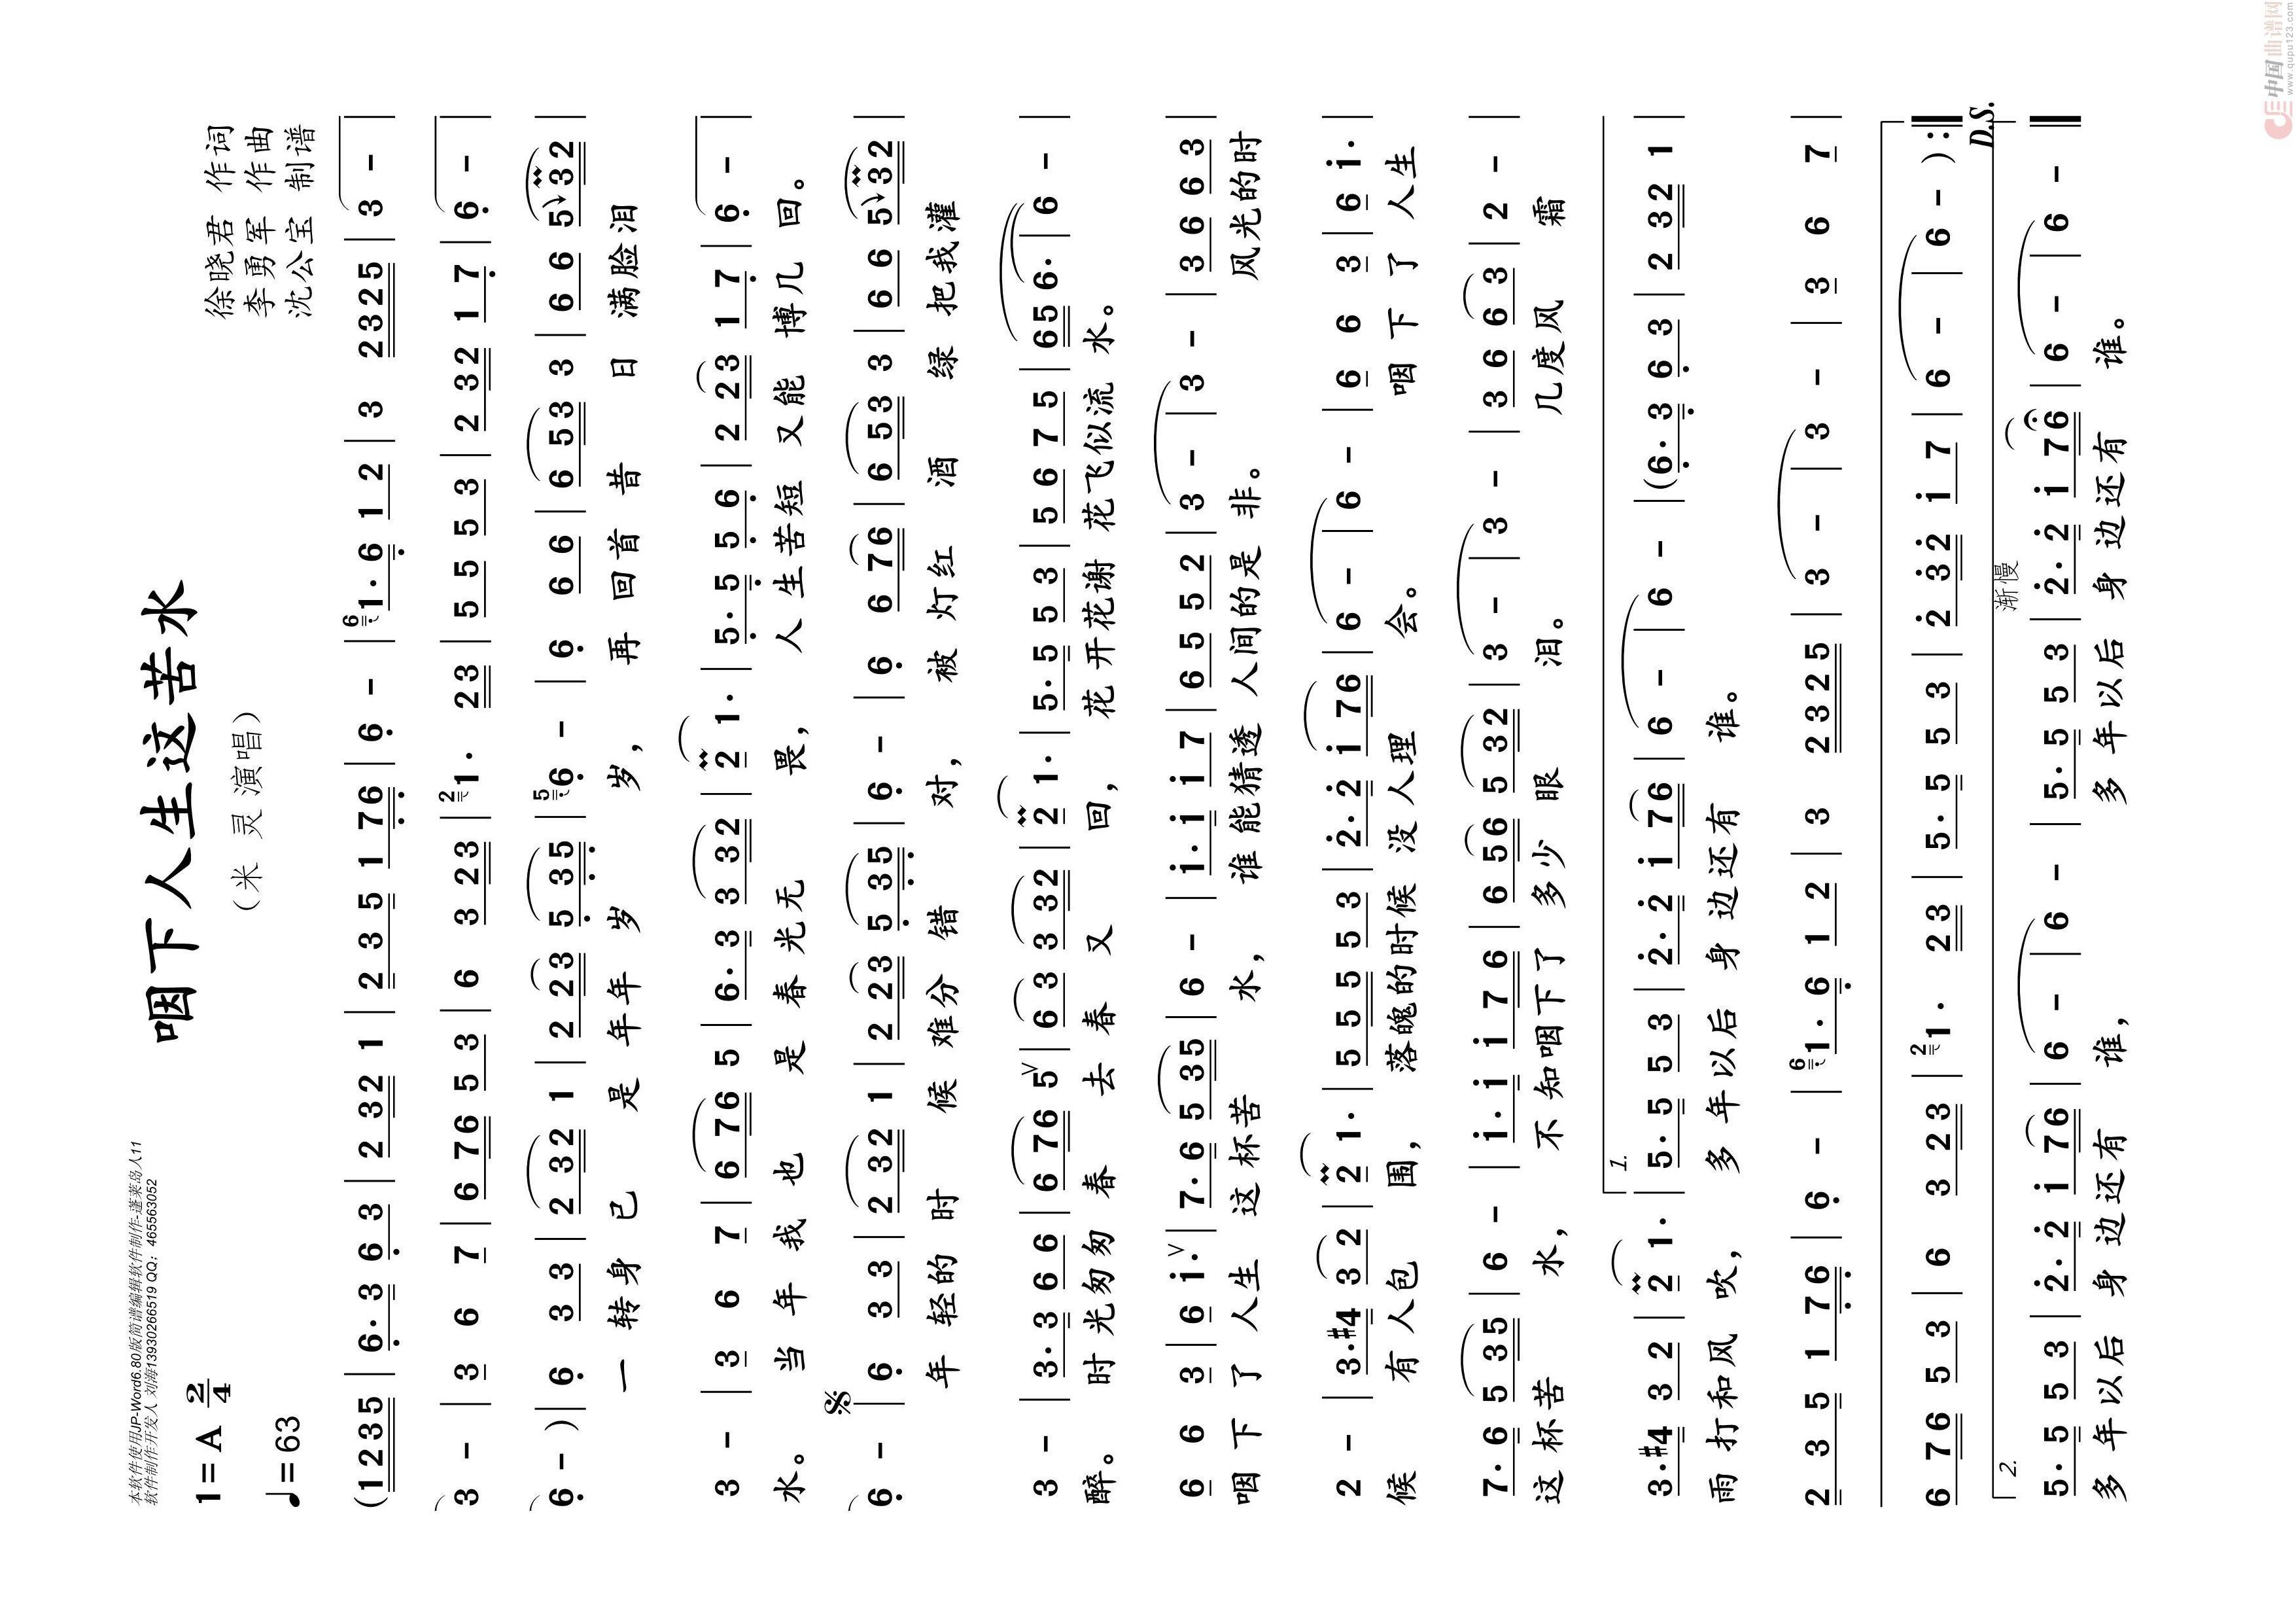 本软件使用JP-Word6.80版简谱编辑软件制作-蓬莱岛人11
软件制作开发人 刘海13930266519 QQ：465563052
咽下人生这苦水
（米 灵 演唱）
1=A 2/4
♩=63
徐晓君 作词
李勇军 作曲
沈公宝 制谱
(1235 | 6·3 63 | 2 32 1 | 2 3 5 1 76 | 6 - | 6 1·6 12 | 3 2325 | 3 - |
3 - | 3 6 7 | 6 76 53 | 6 3 23 | 2 1· 23 | 55 53 | 2 32 17 | 6 - |
6 - ) | 6 33 | 2 32 1 | 2 23 5 35 | 5 6 - | 6 66 | 6 53 3 | 66 5 32 |
一 转身 已 是 年年 岁 岁， 再 回首 昔 日 满脸泪
3 - | 3 6 7 | 6 76 5 | 6·3 3 32 | 2 1· | 5·5 56 | 2 23 17 | 6 - |
水。 当 年 我 也 是 春 光无 畏， 人 生苦短 又能 博几 回。
6 - | 6 33 | 2 32 1 | 2 23 5 35 | 6 - | 6 6 76 | 6 53 3 | 66 5 32 |
年 轻的 时 候 难分 错 对， 被 灯红 酒 绿 把我灌
3 - | 3·3 66 | 6 76 5 | 63 3 32 | 2 1· | 5·5 53 | 56 75 | 65 6· | 6 - |
醉。 时 光匆匆 春 去 春 又 回， 花 开花谢 花飞似流 水。
6 6 3 | 6 i· | 7·6 5 35 | 6 - | i·i i7 | 65 52 | 3 - | 3 - | 36 63 |
咽 下 了 人生 这杯苦 水， 谁 能猜透 人间的是 非。 风光的时
2 - | 3·#4 32 | 2 1· | 55 53 | 2·2 i 76 | 6 - | 6 - | 6 6 3 | 6 i· |
候 有 人包 围， 落魄的时候 没 人理 会。 咽 下 了 人生
7·6 5 35 | 6 - | i·i i 76 | 6 56 5 32 | 3 - | 3 - | 36 63 | 2 - |
这杯苦 水， 不 知咽下了 多少 眼 泪。 几度风 霜
1.
3·#4 32 | 2 1· | 5·5 53 | 2·2 i 76 | 6 - | 6 - | (6·3 63 | 2 32 1 |
雨 打和风 吹， 多 年以后 身 边还有 谁。
2 3 5 1 76 | 6 - | 6 1·6 12 | 3 2325 | 3 - | 3 - | 3 6 7 |
6 76 53 | 6 3 23 | 2 1· 23 | 5·5 53 | 2 32 i7 | 6 - | 6 - ) :|
D.S.
2.
渐慢
5·5 53 | 2·2 i 76 | 6 - | 6 - | 5·5 53 | 2·2 i 76 | 6 - | 6 - ‖
多 年以后 身 边还有 谁， 多 年以后 身 边还有 谁。
中国曲谱网
www.qupu123.com